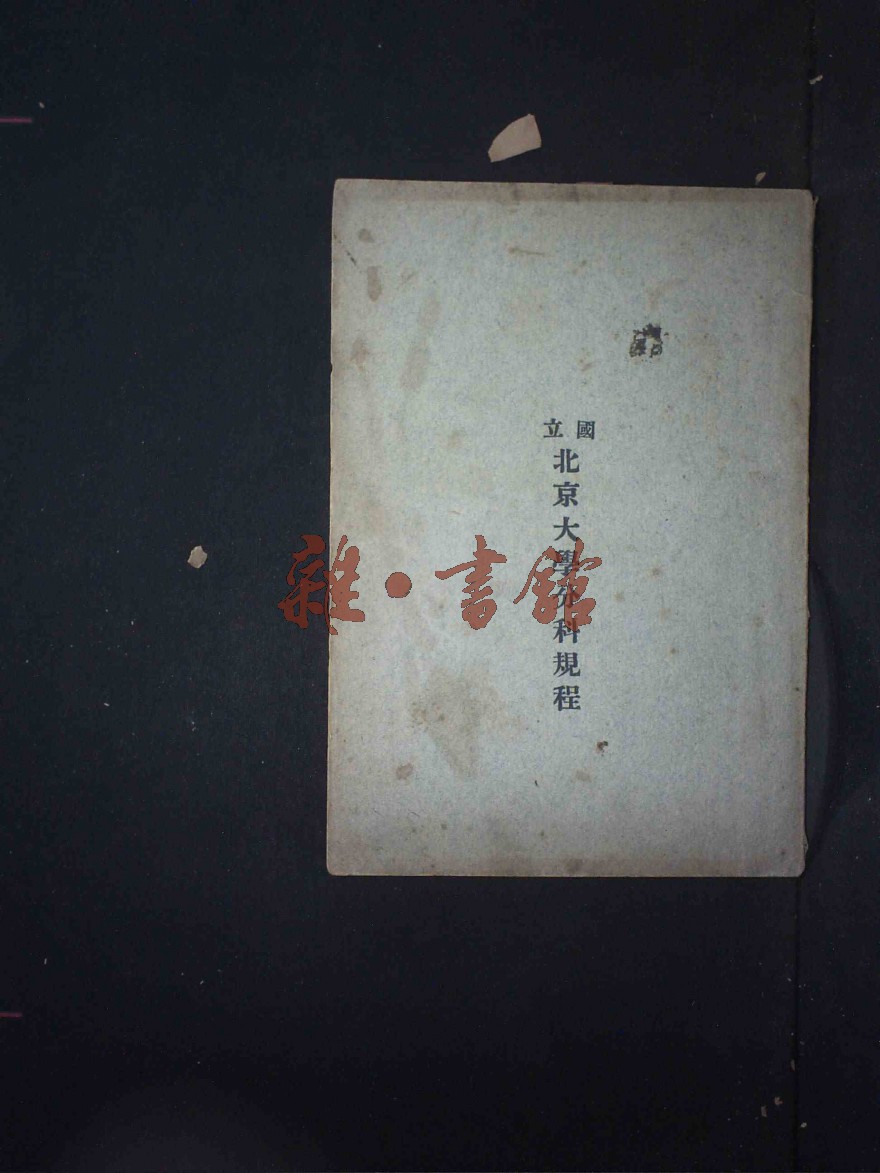 國立
北京大學分科規程
雜·書館